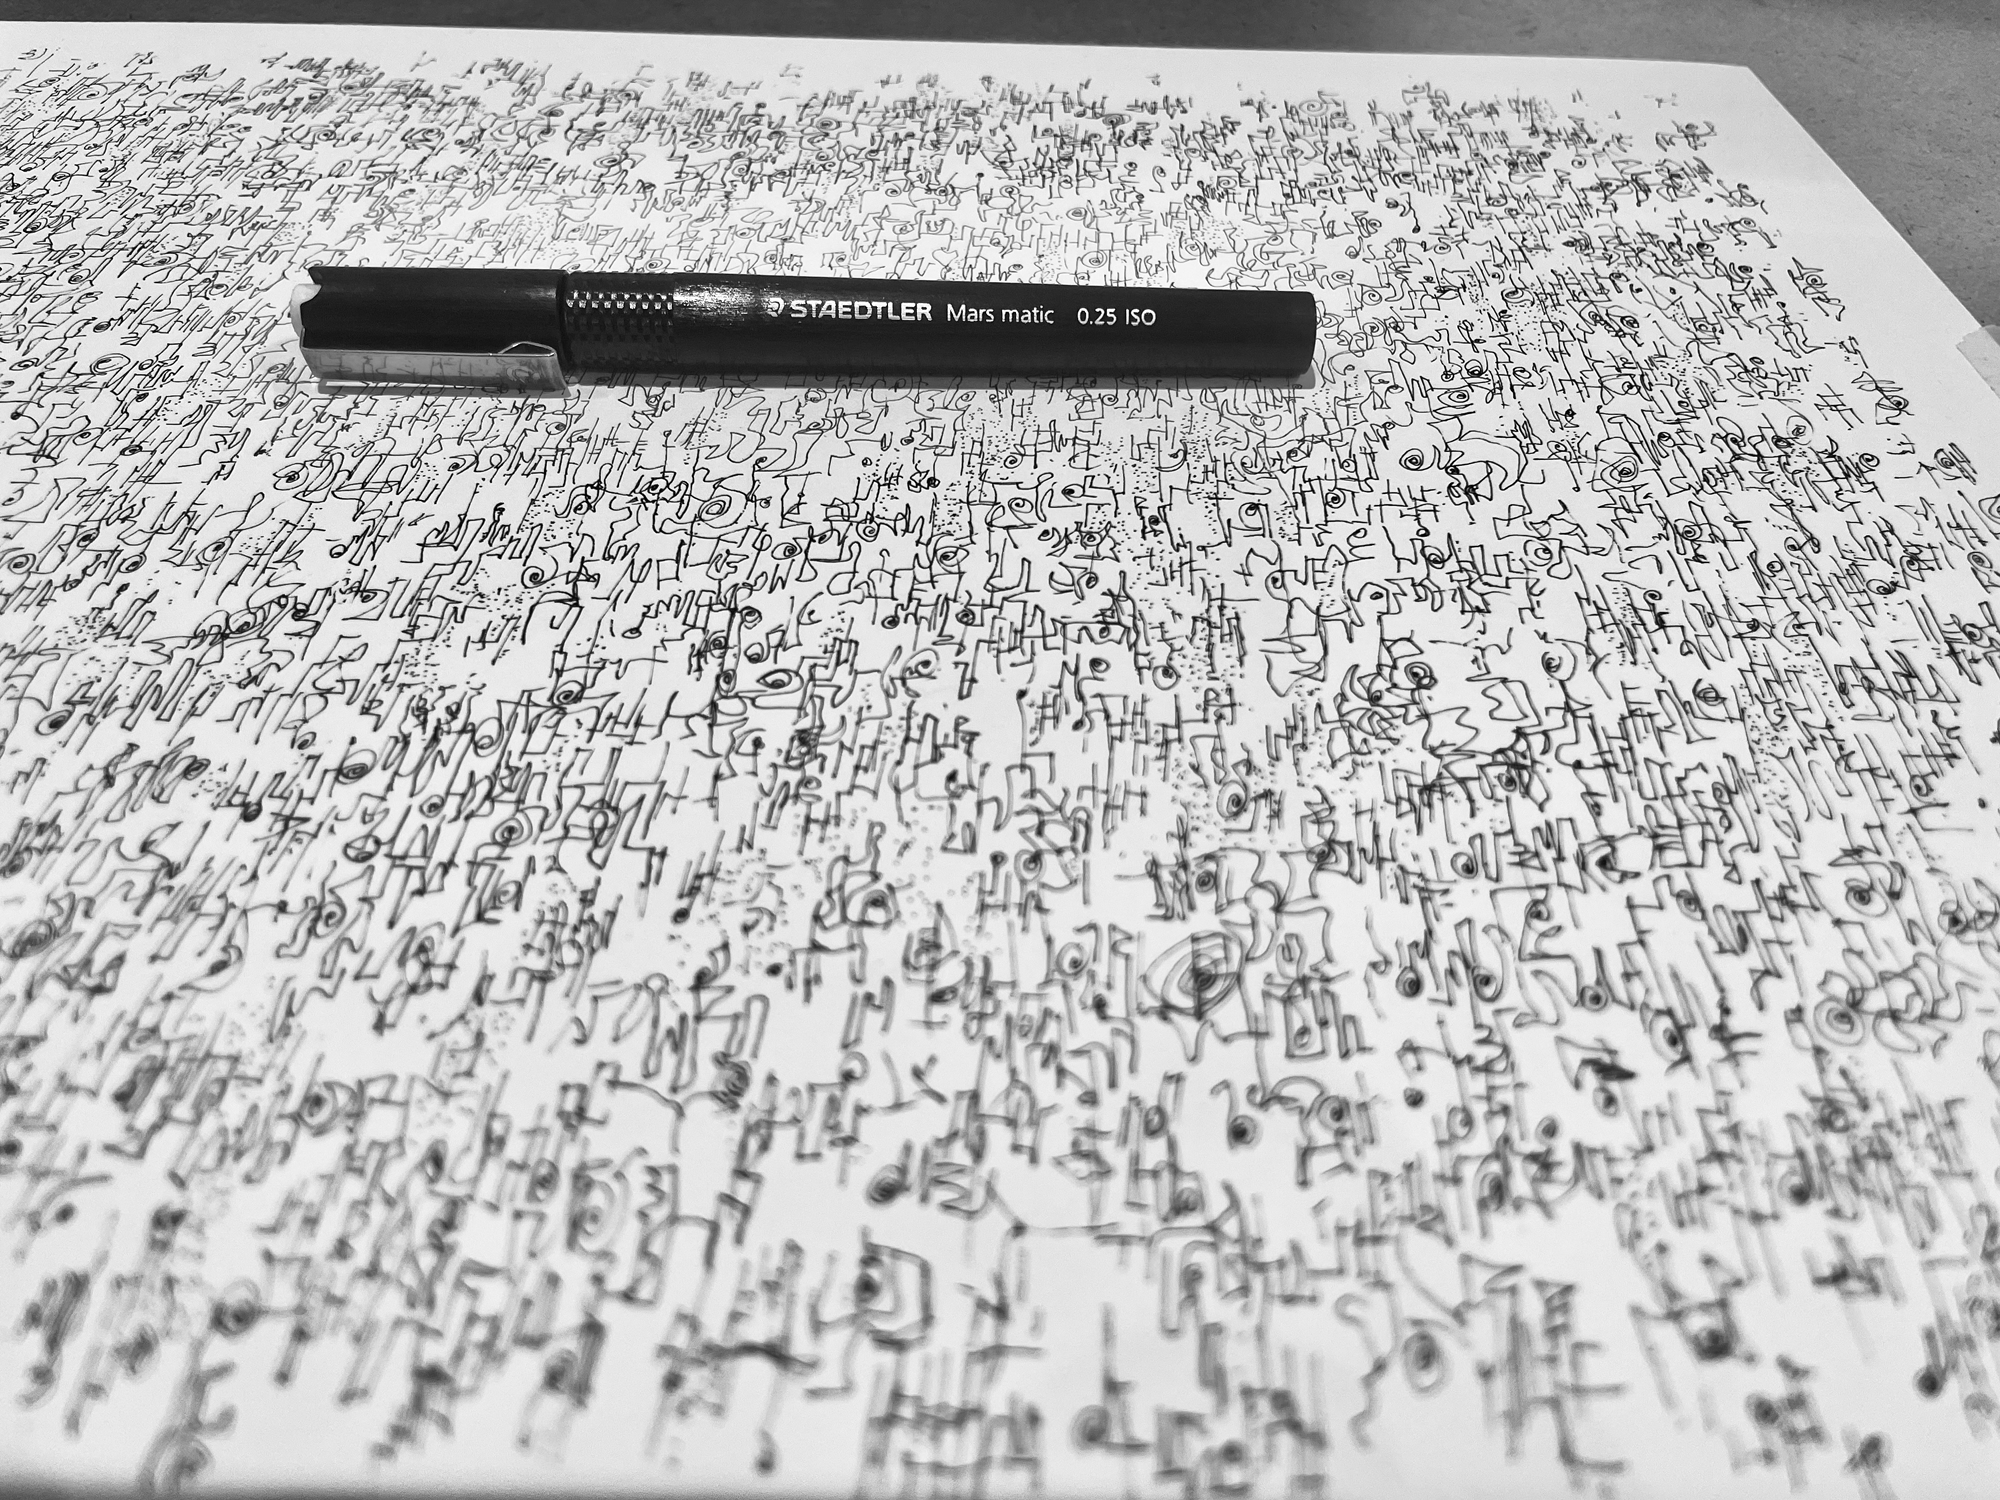 STAEDTLER Mars matic 0.25 ISO